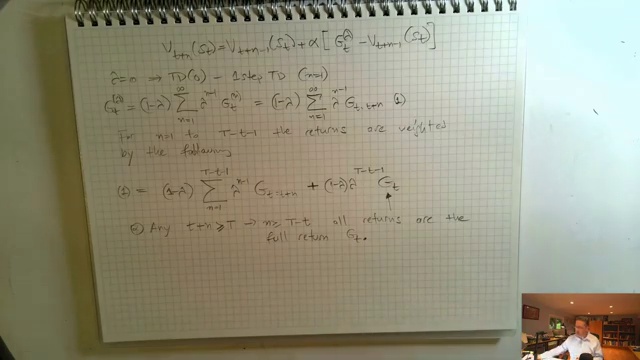 V_{t+n}(S_t) = V_{t+n-1}(S_t) + α [ G_t^λ - V_{t+n-1}(S_t) ]
λ=0 ⇒ TD(0) - 1 step TD (n=1)
G_t^{(λ)} = (1-λ) Σ_{n=1}^{∞} λ^{n-1} G_t^{(n)} = (1-λ) Σ_{n=1}^{∞} λ^{n-1} G_{t:t+n} (1)
For n=1 to T-t-1 the returns are weighted
by the following
(1) = (1-λ) Σ_{n=1}^{T-t-1} λ^{n-1} G_{t:t+n} + (1-λ) λ^{T-t-1} G_t
Any t+n ≥ T → n ≥ T-t all returns are the
full return G_t.